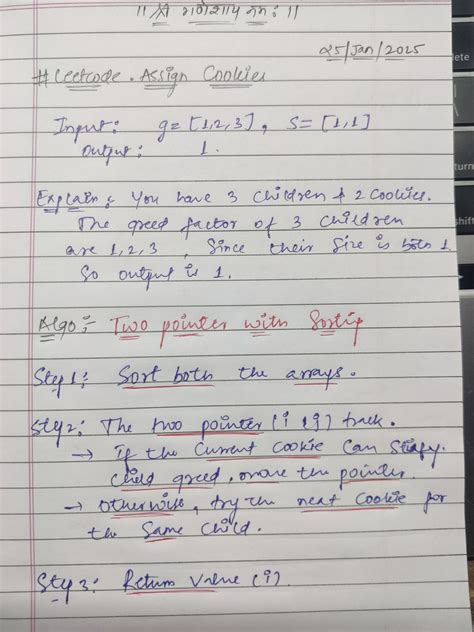 ॥ श्री गणेशाय नमः ॥
25/Jan/2025
#Leetcode. Assign Cookies
Input: g= [1,2,3], S= [1,1]
Output: 1.
Explain: You have 3 children & 2 Cookies.
The greed factor of 3 children
are 1,2,3, Since their Size is both 1
So output is 1.
Algo:- Two pointer with Sortig
Step1: Sort both the arrays.
Step2: The two pointer (i & j) track.
→ if the current cookie can
child greed, move the pointer.
→ otherwise, try the next cookie for
the same child.
Step 3: Return value (i).
lete
turn
shift